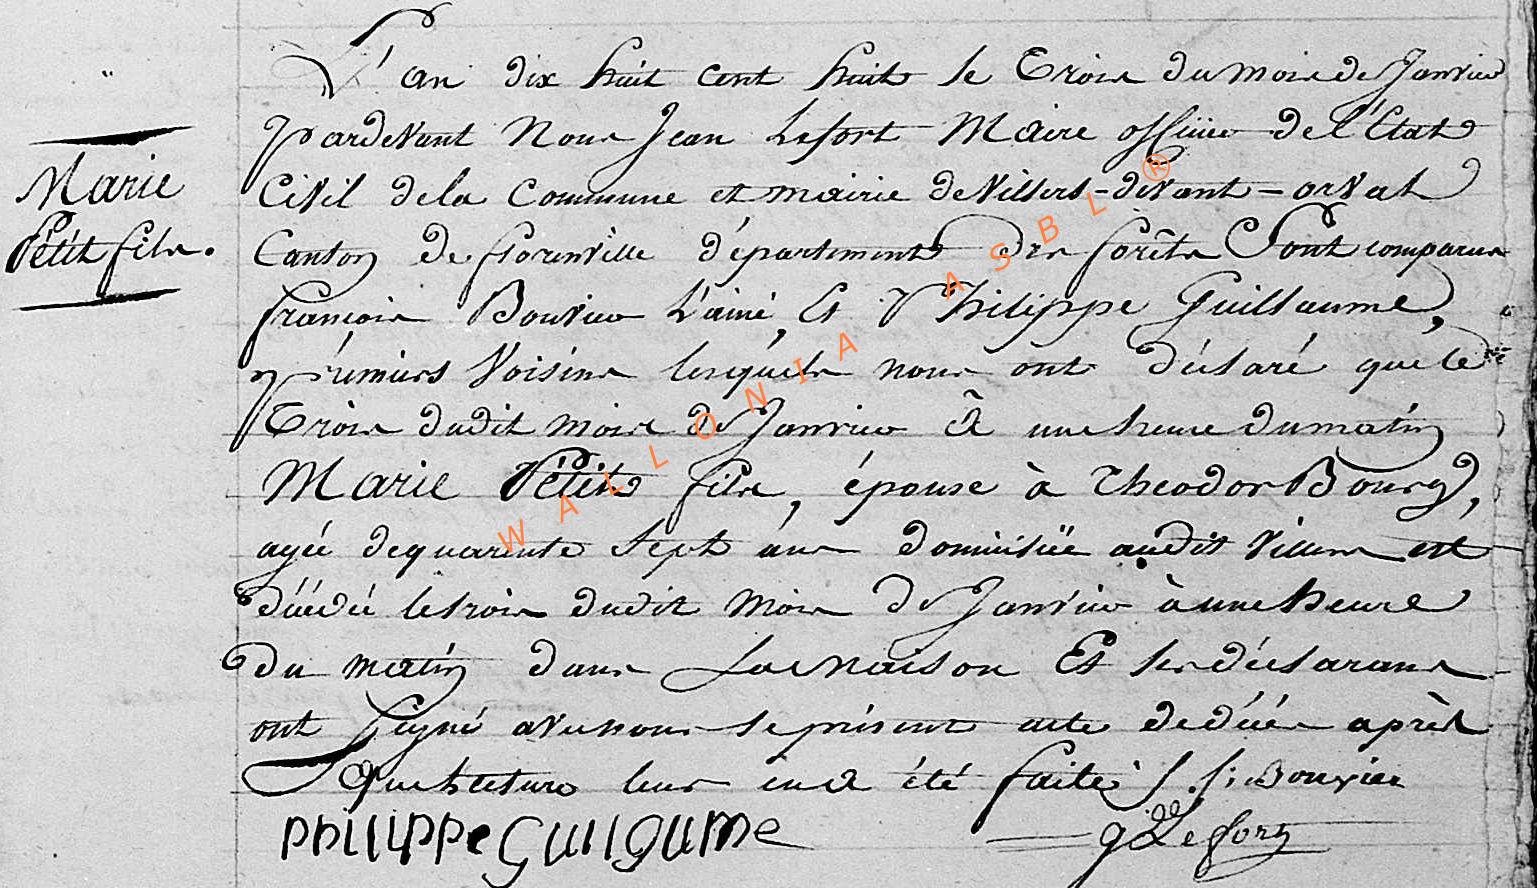 L'an dix huit cent huit le trois du mois de Janvier
pardevant Nous Jean Lefort Maire officier de l'Etat
Civil de la Commune et mairie de Villers-devant-orval
Marie
Petit fils.
Canton de florenville département des forêts Sont comparus
françois Bouvier L'ainé, Et Philippe Guillaume,
prémiers Voisins lesquéls nous ont déclaré que le
Trois dudit mois de Janvier à une heure du matin
Marie Pétit fils, épouse à Theodor Bourg,
agée de quarente Sept ans domiciliée audit Villers est
décédée le trois dudit Mois de Janvier à une heure
du matin dans La maison Et les déclarans
ont signé avec nous le présent acte de décés après
que lecture leur en a été faite f. Bouvier
PHILIPPe GUILGUMe
Lefort
WALLONIA ASBL ®